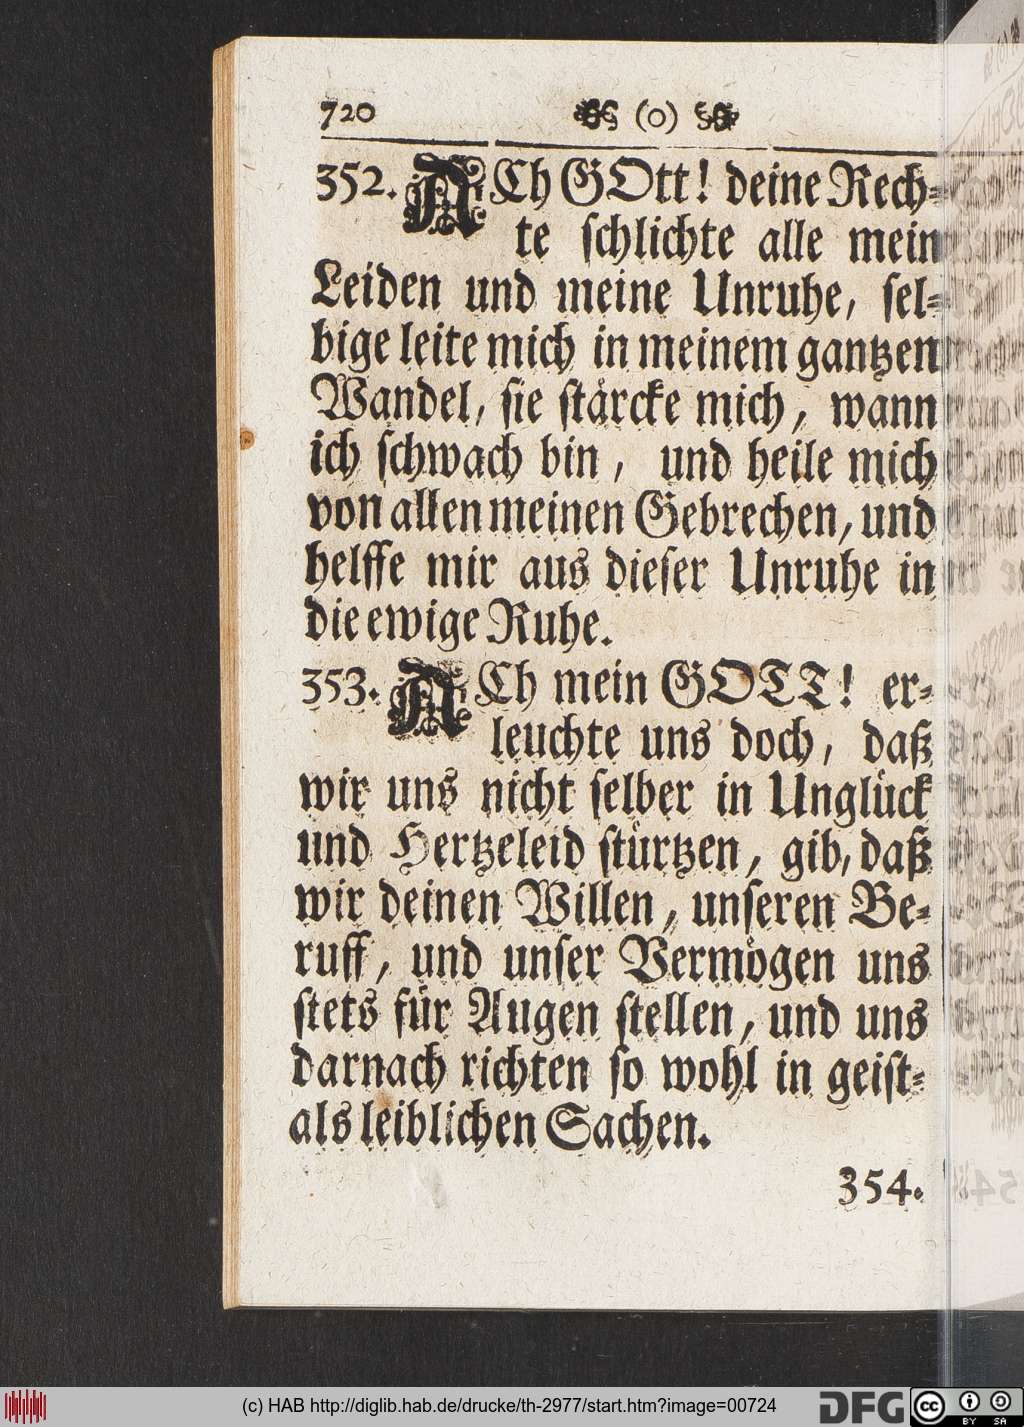 720 (o)
352. ACh GOtt! deine Rech⸗
te schlichte alle mein
Leiden und meine Unruhe, sel⸗
bige leite mich in meinem gantzen
Wandel, sie stårcke mich, wann
ich schwach bin, und heile mich
von allen meinen Gebrechen, und
helffe mir aus dieser Unruhe in
die ewige Ruhe.
353. ACh mein GOTT! er⸗
leuchte uns doch, daß
wir uns nicht selber in Unglück
und Hertzeleid stürtzen, gib, daß
wir deinen Willen, unseren Be⸗
ruff, und unser Vermögen uns
stets für Augen stellen, und uns
darnach richten so wohl in geist⸗
als leiblichen Sachen.
354.
(c) HAB http://diglib.hab.de/drucke/th-2977/start.htm?image=00724
DFG cc BY SA